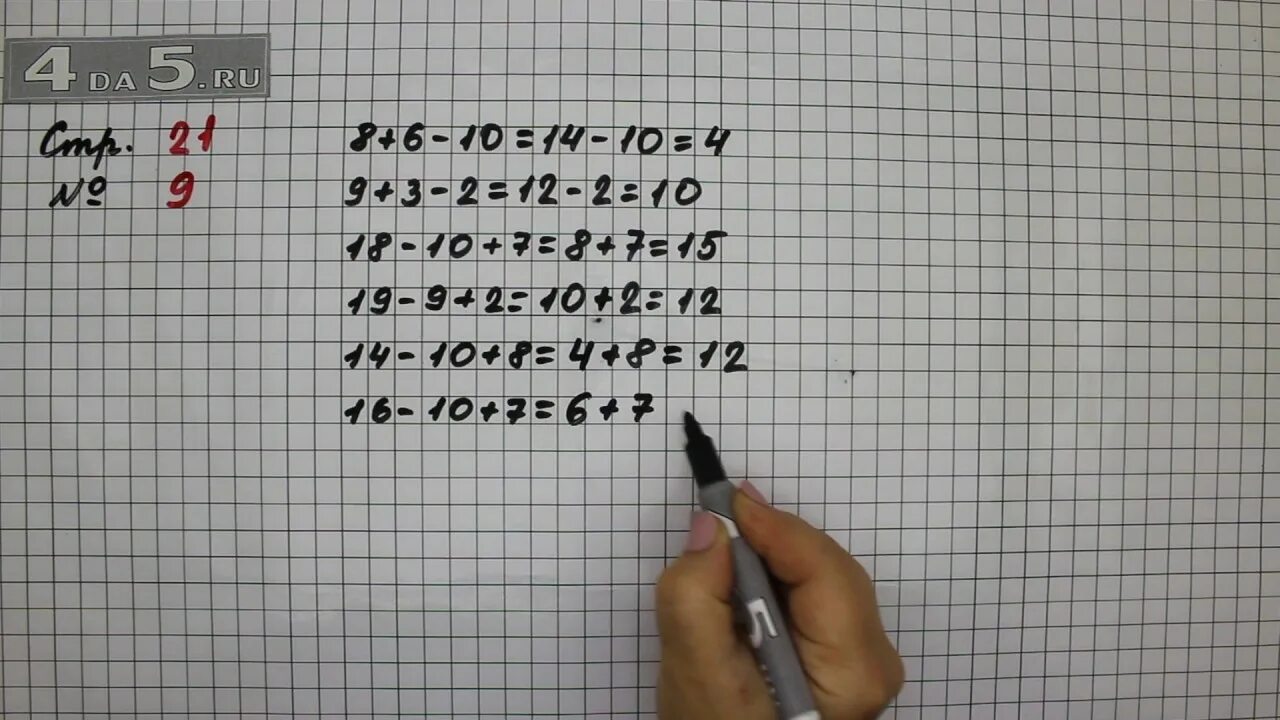 4DA5.RU
Стр. 21
№ 9
8+6-10=14-10=4
9+3-2=12-2=10
18-10+7=8+7=15
19-9+2=10+2=12
14-10+8=4+8=12
16-10+7=6+7
5